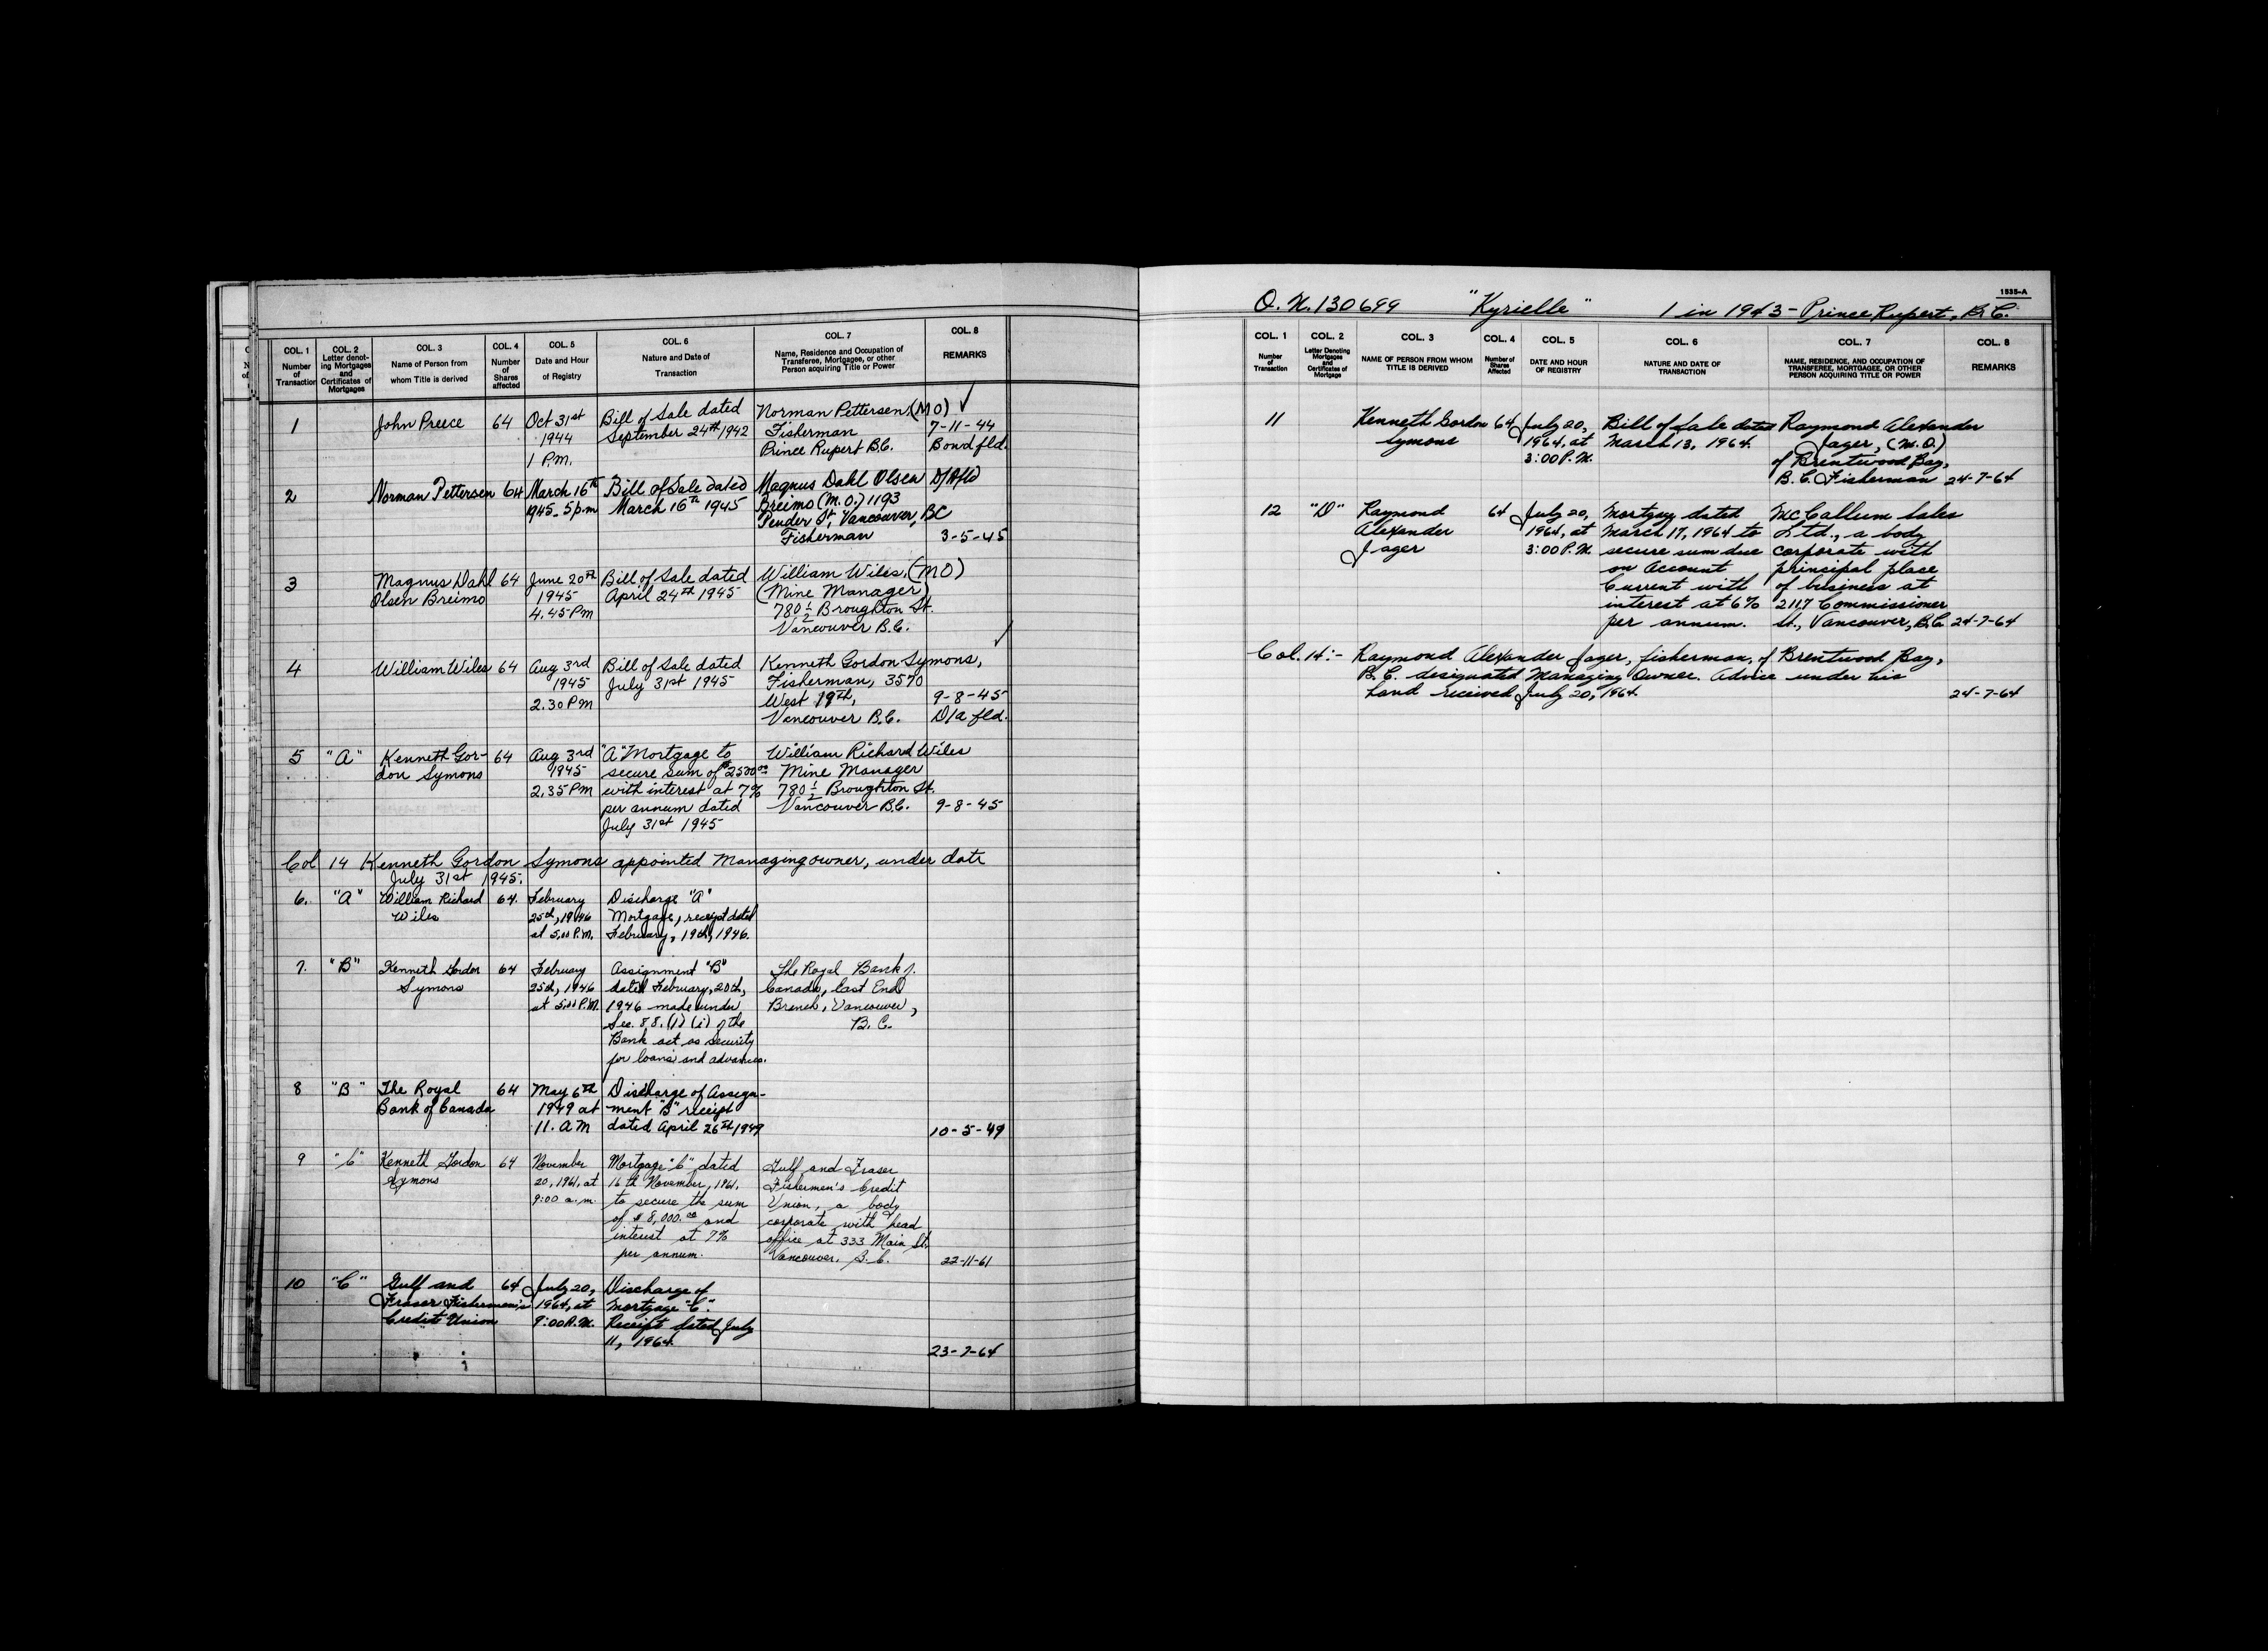 COL. 1
Number
of
Transaction
COL. 2
Letter denot-
ing Mortgages
and
Certificates of
Mortgages
COL. 3
Name of Person from
whom Title is derived
COL. 4
Number
of
Shares
affected
COL. 5
Date and Hour
of Registry
COL. 6
Nature and Date of
Transaction
COL. 7
Name, Residence and Occupation of
Transferee, Mortgagee, or other
Person acquiring Title or Power
COL. 8
REMARKS
1 John Preece 64 Oct 31st Bill of Sale dated Norman Pettersen, (MO) ✓
1944 September 24th 1942 Fisherman 7-11-44
1 P.M. Prince Rupert B.C. Bond fld.
2 Norman Pettersen 64 March 16th Bill of Sale dated Magnus Dahl Olsen D/A fld
1945. 5 p.m March 16th 1945 Breimo (M.O.) 1193
Pender St, Vancouver, BC
Fisherman 3-5-45
3 Magnus Dahl 64 June 20th Bill of Sale dated William Wiles, (MO)
Olsen Breimo 1945 April 24th 1945 (Mine Manager)
4.45 Pm 780 1/2 Broughton St.
Vancouver B.C. ✓
4 William Wiles 64 Aug 3rd Bill of Sale dated Kenneth Gordon Symons,
1945 July 31st 1945 Fisherman, 3570
2.30 PM West 19th, 9-8-45
Vancouver B.C. D/a fld.
5 "A" Kenneth Gor- 64 Aug 3rd "A" Mortgage to William Richard Wiles
don Symons 1945 secure sum of $2500 00 Mine Manager
2.35 PM with interest at 7% 780 1/2 Broughton St.
per annum dated Vancouver B.C. 9-8-45
July 31st 1945
Col 14 Kenneth Gordon Symons appointed Managing owner, under date
July 31st 1945.
6. "A" William Richard 64. February Discharge "A"
Wiles 25th, 1946 Mortgage, receipt dated
at 5.00 P.M. February, 19th, 1946.
7. "B" Kenneth Gordon 64 February Assignment "B" The Royal Bank of
Symons 25th, 1946 dated February, 20th, Canada, East End
at 5.00 P.M. 1946 made under Branch, Vancouver,
Sec. 88. (1) (i) of the B. C.
Bank act as security
for loans and advances.
8 "B" The Royal 64 May 6th Discharge of Assign-
Bank of Canada 1949 at ment "B" receipt
11. AM dated April 26th 1949 10-5-49
9 "C" Kenneth Gordon 64 November Mortgage "C" dated Gulf and Fraser
Symons 20, 1961, at 16th November, 1961. Fishermen's Credit
9:00 a.m. to secure the sum Union, a body
of $8,000.00 and corporate with head
interest at 7% office at 333 Main St.
per annum. Vancouver, B.C. 22-11-61
10 "C" Gulf and 64 July 20, Discharge of
Fraser Fishermen's 1964, at Mortgage "C".
Credit Union 9:00 A.M. Receipt dated July
11, 1964. 23-7-64
1535-A
O.N. 130699 "Kyrielle" 1 in 1943 - Prince Rupert, B.C.
COL. 1
Number
of
Transaction
COL. 2
Letter Denoting
Mortgages
and
Certificates of
Mortgage
COL. 3
NAME OF PERSON FROM WHOM
TITLE IS DERIVED
COL. 4
Number of
Shares
Affected
COL. 5
DATE AND HOUR
OF REGISTRY
COL. 6
NATURE AND DATE OF
TRANSACTION
COL. 7
NAME, RESIDENCE, AND OCCUPATION OF
TRANSFEREE, MORTGAGEE, OR OTHER
PERSON ACQUIRING TITLE OR POWER
COL. 8
REMARKS
11 Kenneth Gordon 64 July 20, Bill of Sale dated Raymond Alexander
Symons 1964, at March 13, 1964. Jager, (M.O.)
3:00 P.M. of Brentwood Bay,
B.C. Fisherman 24-7-64
12 "D" Raymond 64 July 20, Mortgage dated McCallum Sales
Alexander 1964, at March 17, 1964 to Ltd., a body
Jager 3:00 P.M. secure sum due corporate with
on Account principal place
Current with of business at
interest at 6% 2117 Commissioner
per annum. St., Vancouver, B.C. 24-7-64
Col. 14:- Raymond Alexander Jager, fisherman, of Brentwood Bay,
B.C. designated Managing Owner. Advice under his
hand received July 20, 1964. 24-7-64